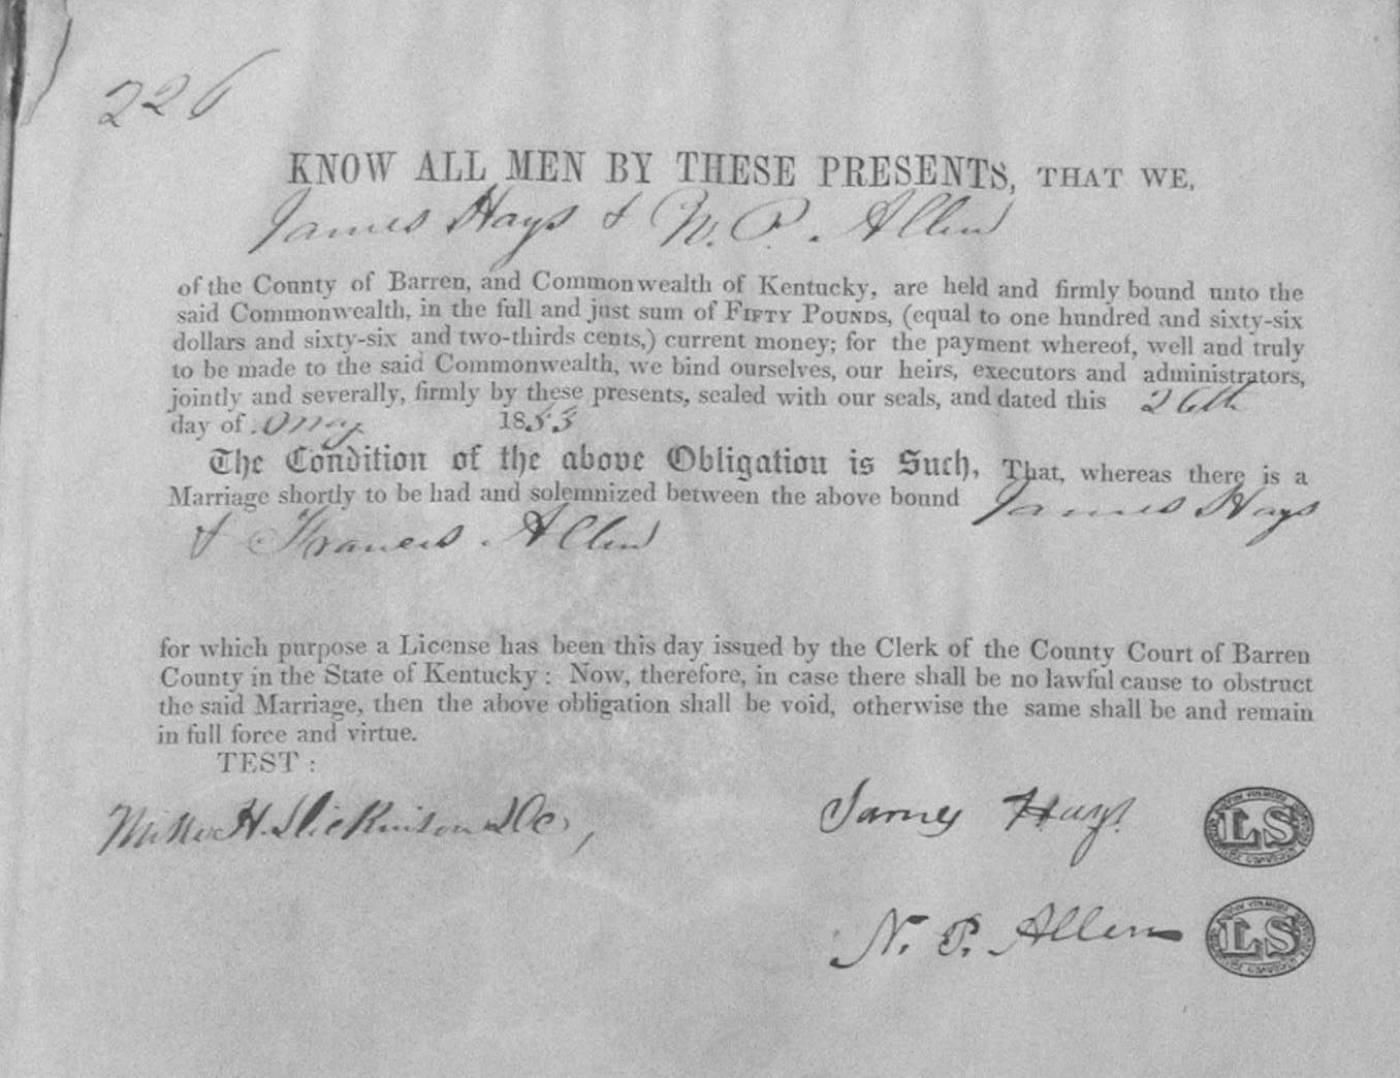 226
KNOW ALL MEN BY THESE PRESENTS, THAT WE,
James Hays & N. P. Allen
of the County of Barren, and Commonwealth of Kentucky, are held and firmly bound unto the
said Commonwealth, in the full and just sum of FIFTY POUNDS, (equal to one hundred and sixty-six
dollars and sixty-six and two-thirds cents,) current money; for the payment whereof, well and truly
to be made to the said Commonwealth, we bind ourselves, our heirs, executors and administrators,
jointly and severally, firmly by these presents, sealed with our seals, and dated this 26th
day of May 1853
The Condition of the above Obligation is Such, That, whereas there is a
Marriage shortly to be had and solemnized between the above bound James Hays
& Frances Allen
for which purpose a License has been this day issued by the Clerk of the County Court of Barren
County in the State of Kentucky: Now, therefore, in case there shall be no lawful cause to obstruct
the said Marriage, then the above obligation shall be void, otherwise the same shall be and remain
in full force and virtue.
TEST:
H. Dickinson James Hays LS
N. P. Allen LS